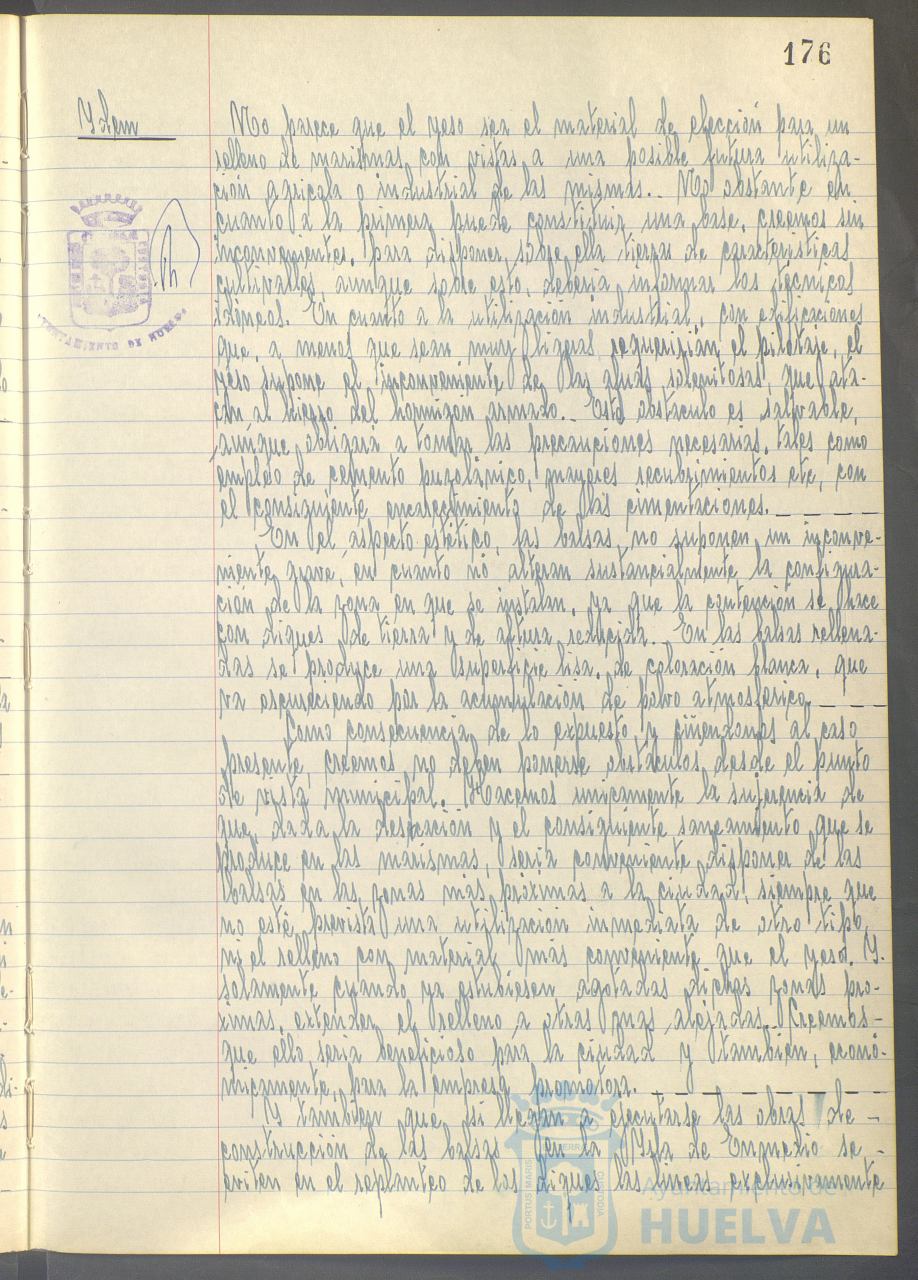 176
Ydem
No parece que el yeso sea el material de elección para un
relleno de marismas con vistas a una posible futura utiliza-
ción agricola o industrial de las mismas.. No obstante en
cuanto a la primera puede constituir una base, creemos sin
inconvenientes, para disponer sobre ella tierras de caracteristicas
cultivables, aunque sobre esto, deberia informar los técnicos
idóneos. En cuanto a la utilización industrial, con edificaciones
que, a menos que sean muy ligeras requeririan el pilotaje, el
yeso supone el inconveniente de las aguas selenitosas, que ata-
can al hierro del hormigon armado.. Este obstaculo es salvable,
aunque obligara a tomar las precauciones necesarias, tales como
empleo de cemento puzolánico, mayores recubrimientos etc, con
el consiguiente encarecimiento de las cimentaciones.
En el aspecto estético, las balsas no suponen un inconve-
niente grave, en cuanto no alteran sustancialmente la configura-
ción de la zona en que se instalan, ya que la contención se hace
con diques de tierra y de altura reducida.. En las balsas rellena-
das se produce una superficie lisa, de coloración blanca, que
va oscureciendo por la acumulación de polvo atmosferico.
Como consecuencia de lo expuesto y ciñendonos al caso
presente, creemos no deben ponerse obstaculos desde el punto
de vista municipal. Hacemos unicamente la sugerencia de
que, dada la desecación y el consiguiente saneamiento que se
produce en las marismas, seria conveniente disponer de las
balsas en las zonas más próximas a la ciudad, siempre que
no esté prevista una utilización inmediata de otro tipo,
ni el relleno con material más conveniente que el yeso. Y
solamente cuando ya estubiesen agotadas dichas zonas pro-
ximas, extender el relleno a otras mas alejadas. Creemos-
que ello seria beneficioso para la ciudad y tambien, econó-
micamente, para la empresa promotora.
Y tambien que si llegan a ejecutarse las obras de -
construcción de las balsas en la Ysla de Enmedio se -
eviten en el replanteo de los diques las lineas exclusivamente
AYUNTAMIENTO DE HUELVA
PORTUS MARIS
Ayuntamiento de
HUELVA